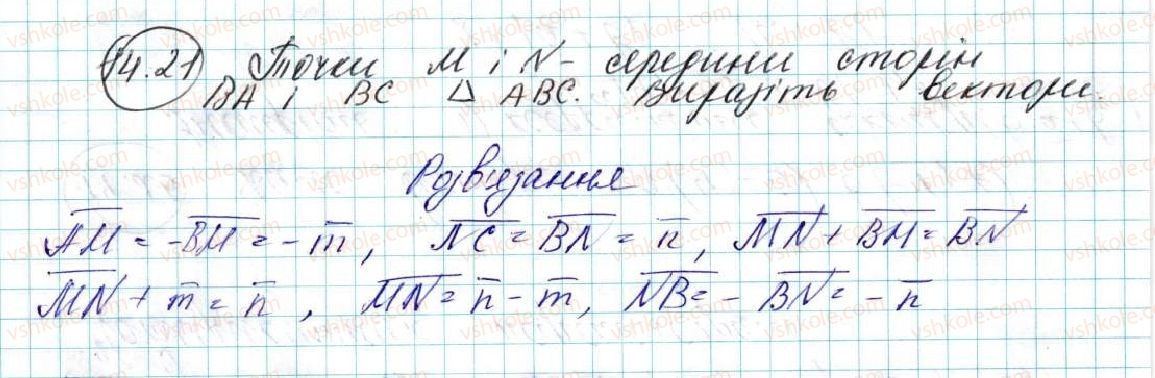 14.21 Точки M і N - середини сторін
BA і BC △ ABC. Виразіть вектори.
Розв'язання
A̅M̅ = -B̅M̅ = -m̅, N̅C̅ = B̅N̅ = n̅, M̅N̅ + B̅M̅ = B̅N̅
M̅N̅ + m̅ = n̅, M̅N̅ = n̅ - m̅, N̅B̅ = -B̅N̅ = -n̅